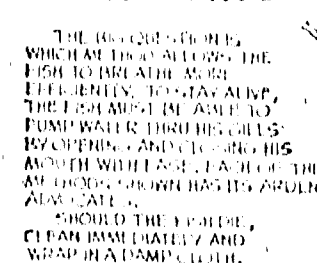 THE BIG QUESTION IS
WHICH METHOD ALLOWS THE
FISH TO BREATHE MORE
EFFICIENTLY. TO STAY ALIVE,
THE FISH MUST BE ABLE TO
PUMP WATER THRU HIS GILLS
BY OPENING AND CLOSING HIS
MOUTH WITH EASE. EACH OF THE
METHODS SHOWN HAS ITS ARDEN
ADVOCATES.
SHOULD THE FISH DIE,
CLEAN IMMEDIATELY AND
WRAP IN A DAMP CLOTH.